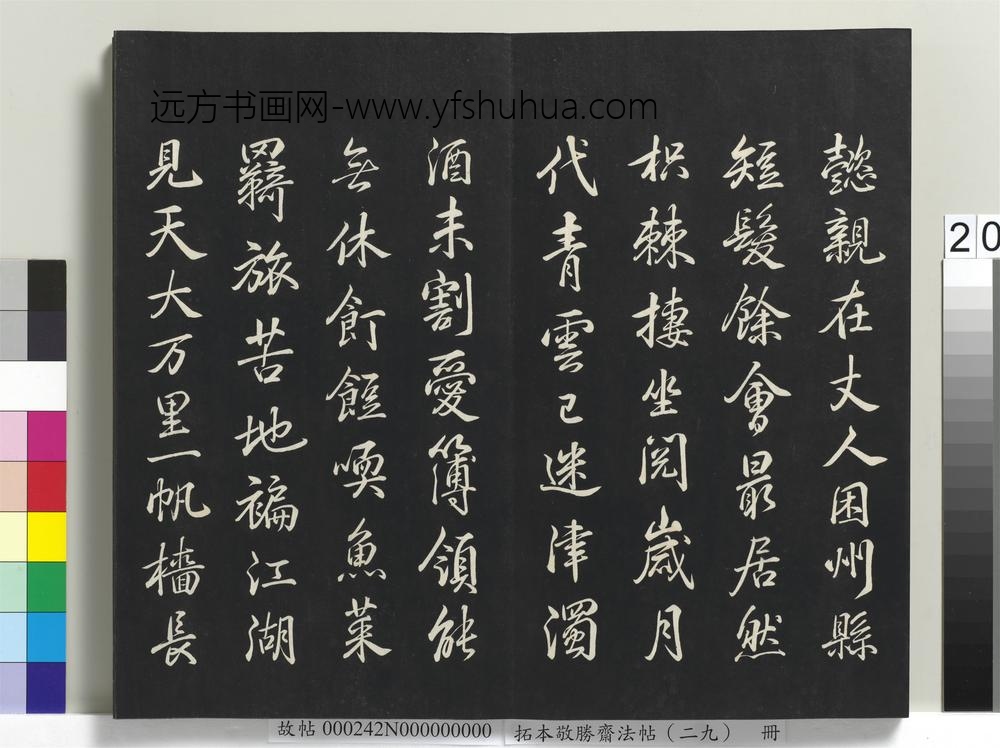 远方书画网-www.yfshuhua.com
懿親在丈人困州縣
短髮餘會最居然
枳棘棲坐閱歲月
代青雲已迷津濁
酒未割愛簿領能
無休飣餖喫魚菜
羇旅苦地褊江湖
見天大万里一帆檣長
20
故帖 000242N000000000 拓本敬勝齋法帖（二九） 冊